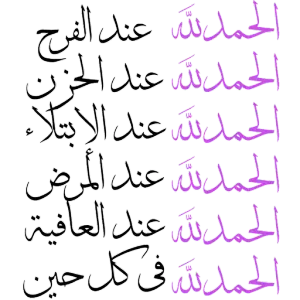 الحمدلله عند الفرح
الحمدلله عند الحزن
الحمدلله عند الابتلاء
الحمدلله عند المرض
الحمدلله عند العافية
الحمدلله في كل حين